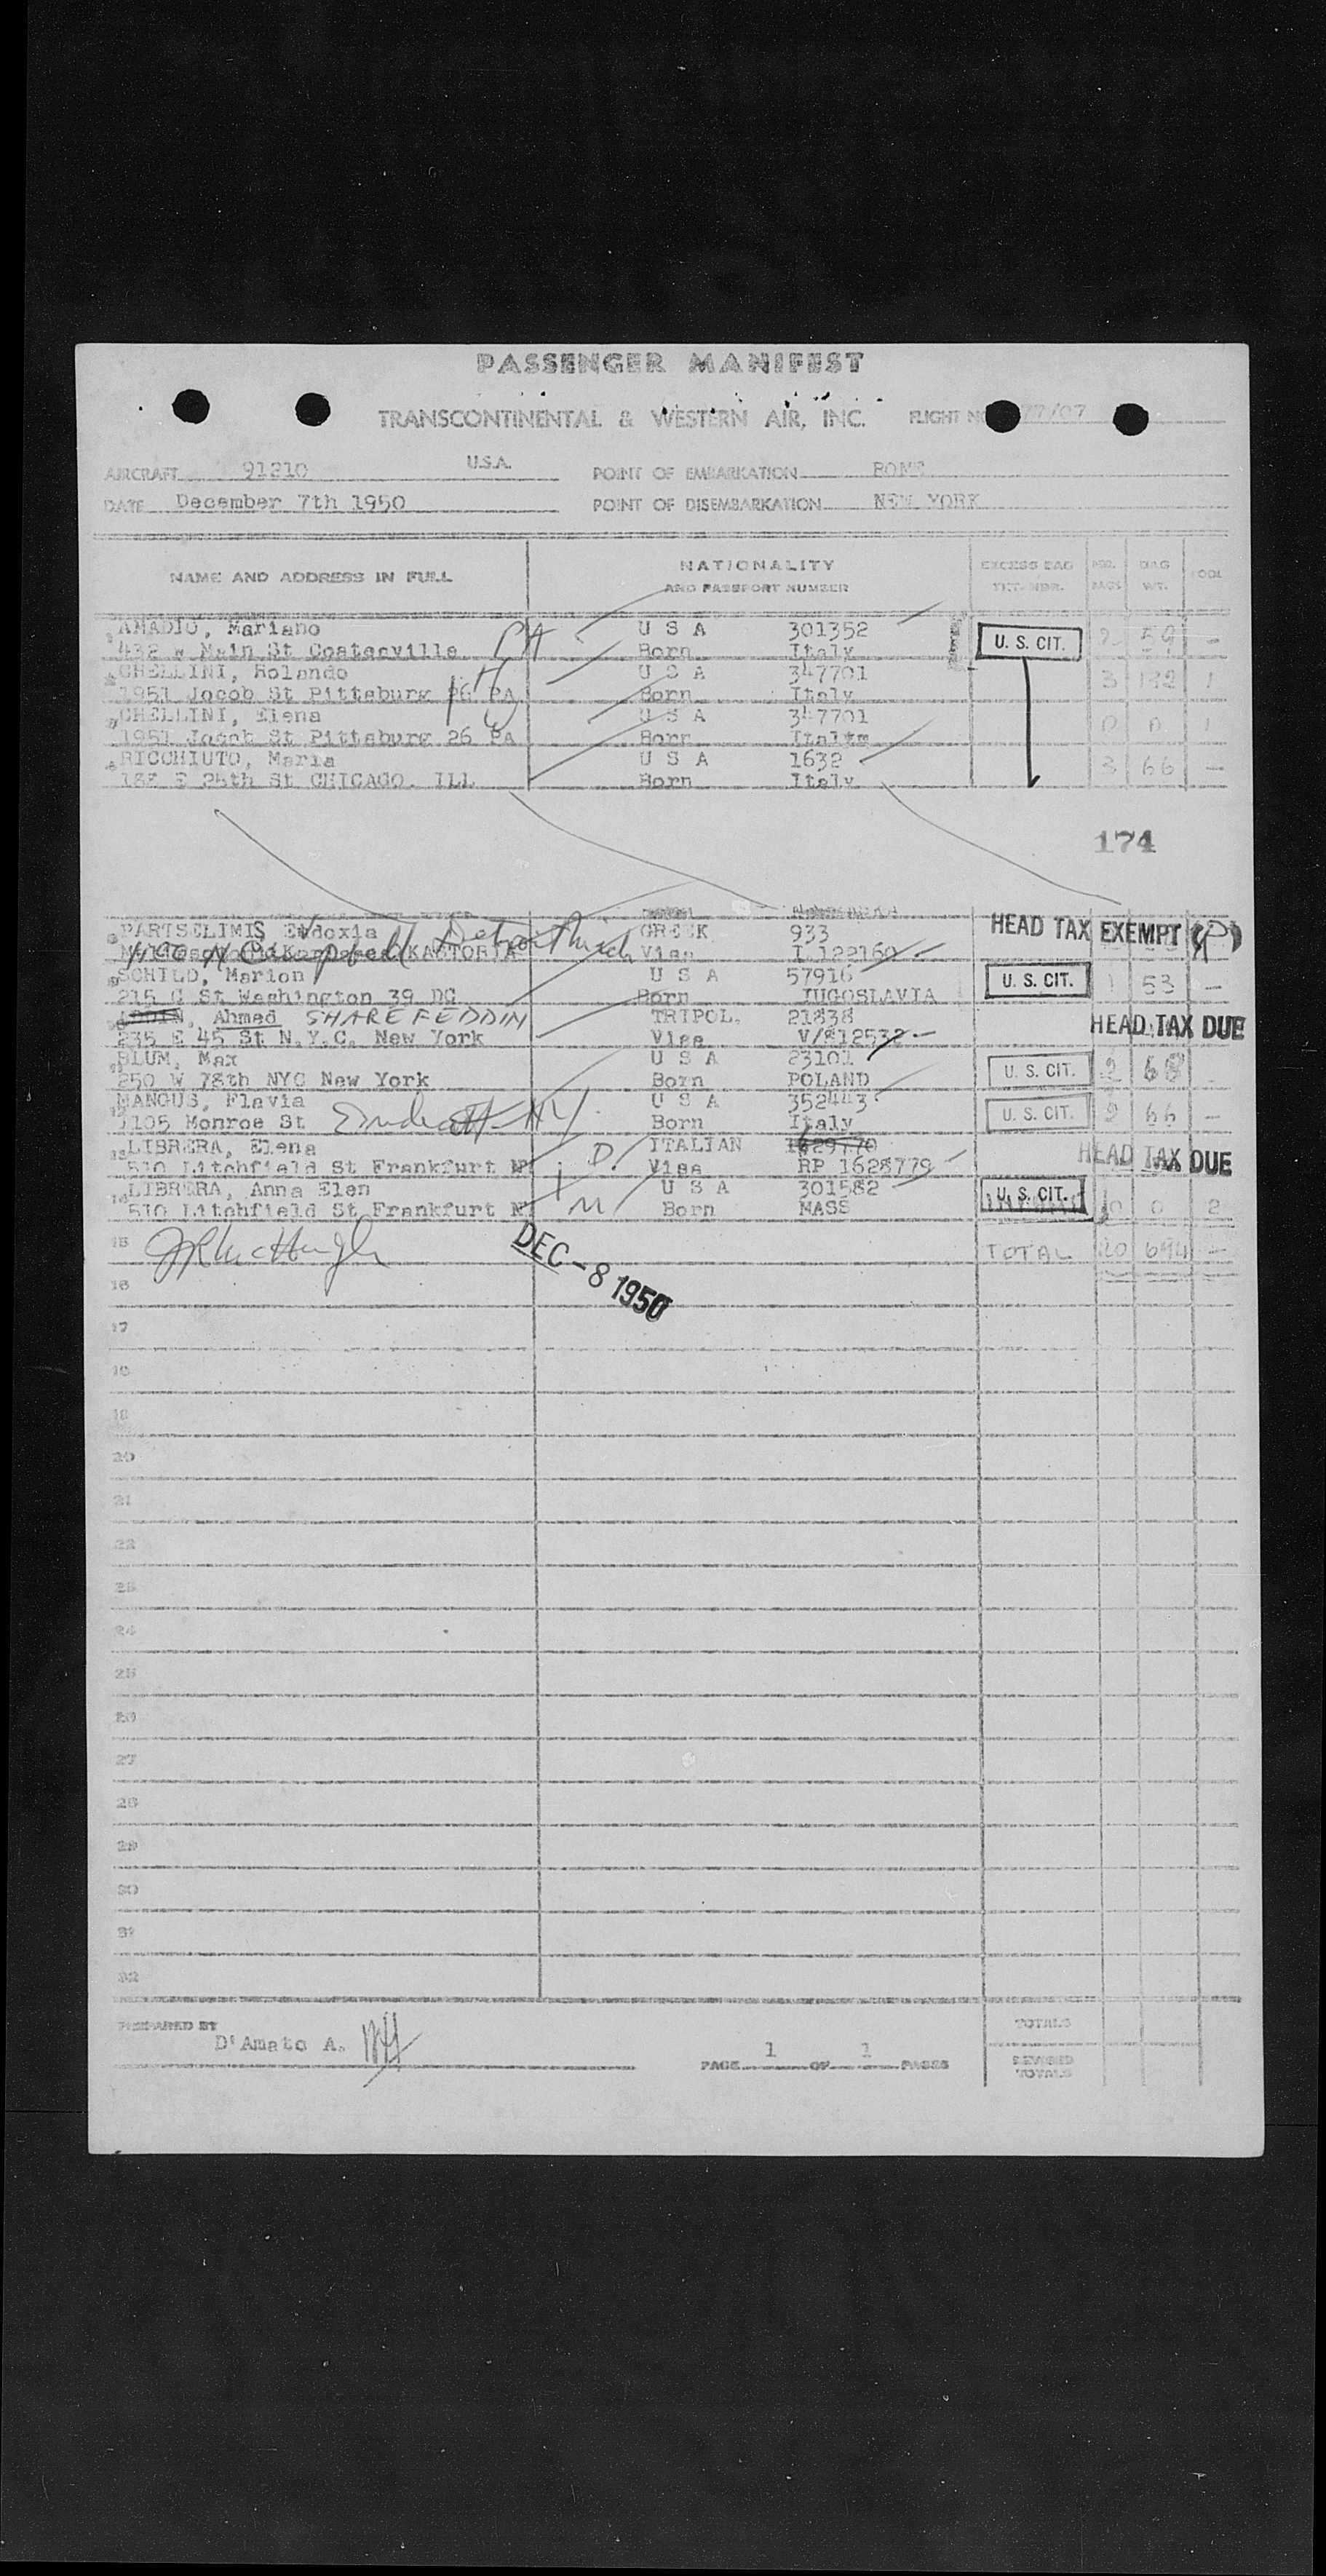 PASSENGER MANIFEST
TRANSCONTINENTAL & WESTERN AIR, INC. FLIGHT NO 77/07
AIRCRAFT 91210 U.S.A. POINT OF EMBARKATION ROME
DATE December 7th 1950 POINT OF DISEMBARKATION NEW YORK
NAME AND ADDRESS IN FULL NATIONALITY AND PASSPORT NUMBER EXCESS BAG TKT. NBR. BAG WT.
AMADIO, Mariano U S A 301352 U. S. CIT. 2 59 -
432 W Main St Coatesville PA Born Italy
GHELLINI, Rolando U S A 347701 3 132 1
1951 Jacob St Pittsburg 26 PA Born Italy
GHELLINI, Elena U S A 347701 0 0 1
1951 Jacob St Pittsburg 26 PA Born
RICCHIUTO, Maria U S A 1632 3 66 -
E 25th St CHICAGO. ILL Born Italy
174
PARTSELIMIS Eudoxia GREEK 933 HEAD TAX EXEMPT
Campbell Detroit Mich KASTORIA Visa I 122160
SCHILD, Marion U S A 57916 U. S. CIT. 1 53 -
215 C St Washington 39 DC Born JUGOSLAVIA
Ahmed SHAREFEDDIN TRIPOL. 21838 HEAD TAX DUE
235 E 45 St N.Y.C. New York Visa V/812532
BLUM, Max U S A 23101 U. S. CIT. 2 68
250 W 78th NYC New York Born POLAND
MANGUS, Flavia U S A 352443 U. S. CIT. 2 66 -
1105 Monroe St NY Born Italy
13 LIBRERA, Elena D. ITALIAN 1629770 HEAD TAX DUE
510 Litchfield St Frankfurt NY Visa RP 1628779
14 LIBRERA, Anna Elen U S A 301582 U. S. CIT. 0 0 2
510 Litchfield St Frankfurt NY M Born MASS
15 TOTAL 20 694 -
DEC - 8 1950
16
17
18
19
20
21
22
23
24
25
26
27
28
29
30
31
32
PREPARED BY D'Amato A. TOTALS
PAGE 1 OF 1 PAGES REVISED TOTALS